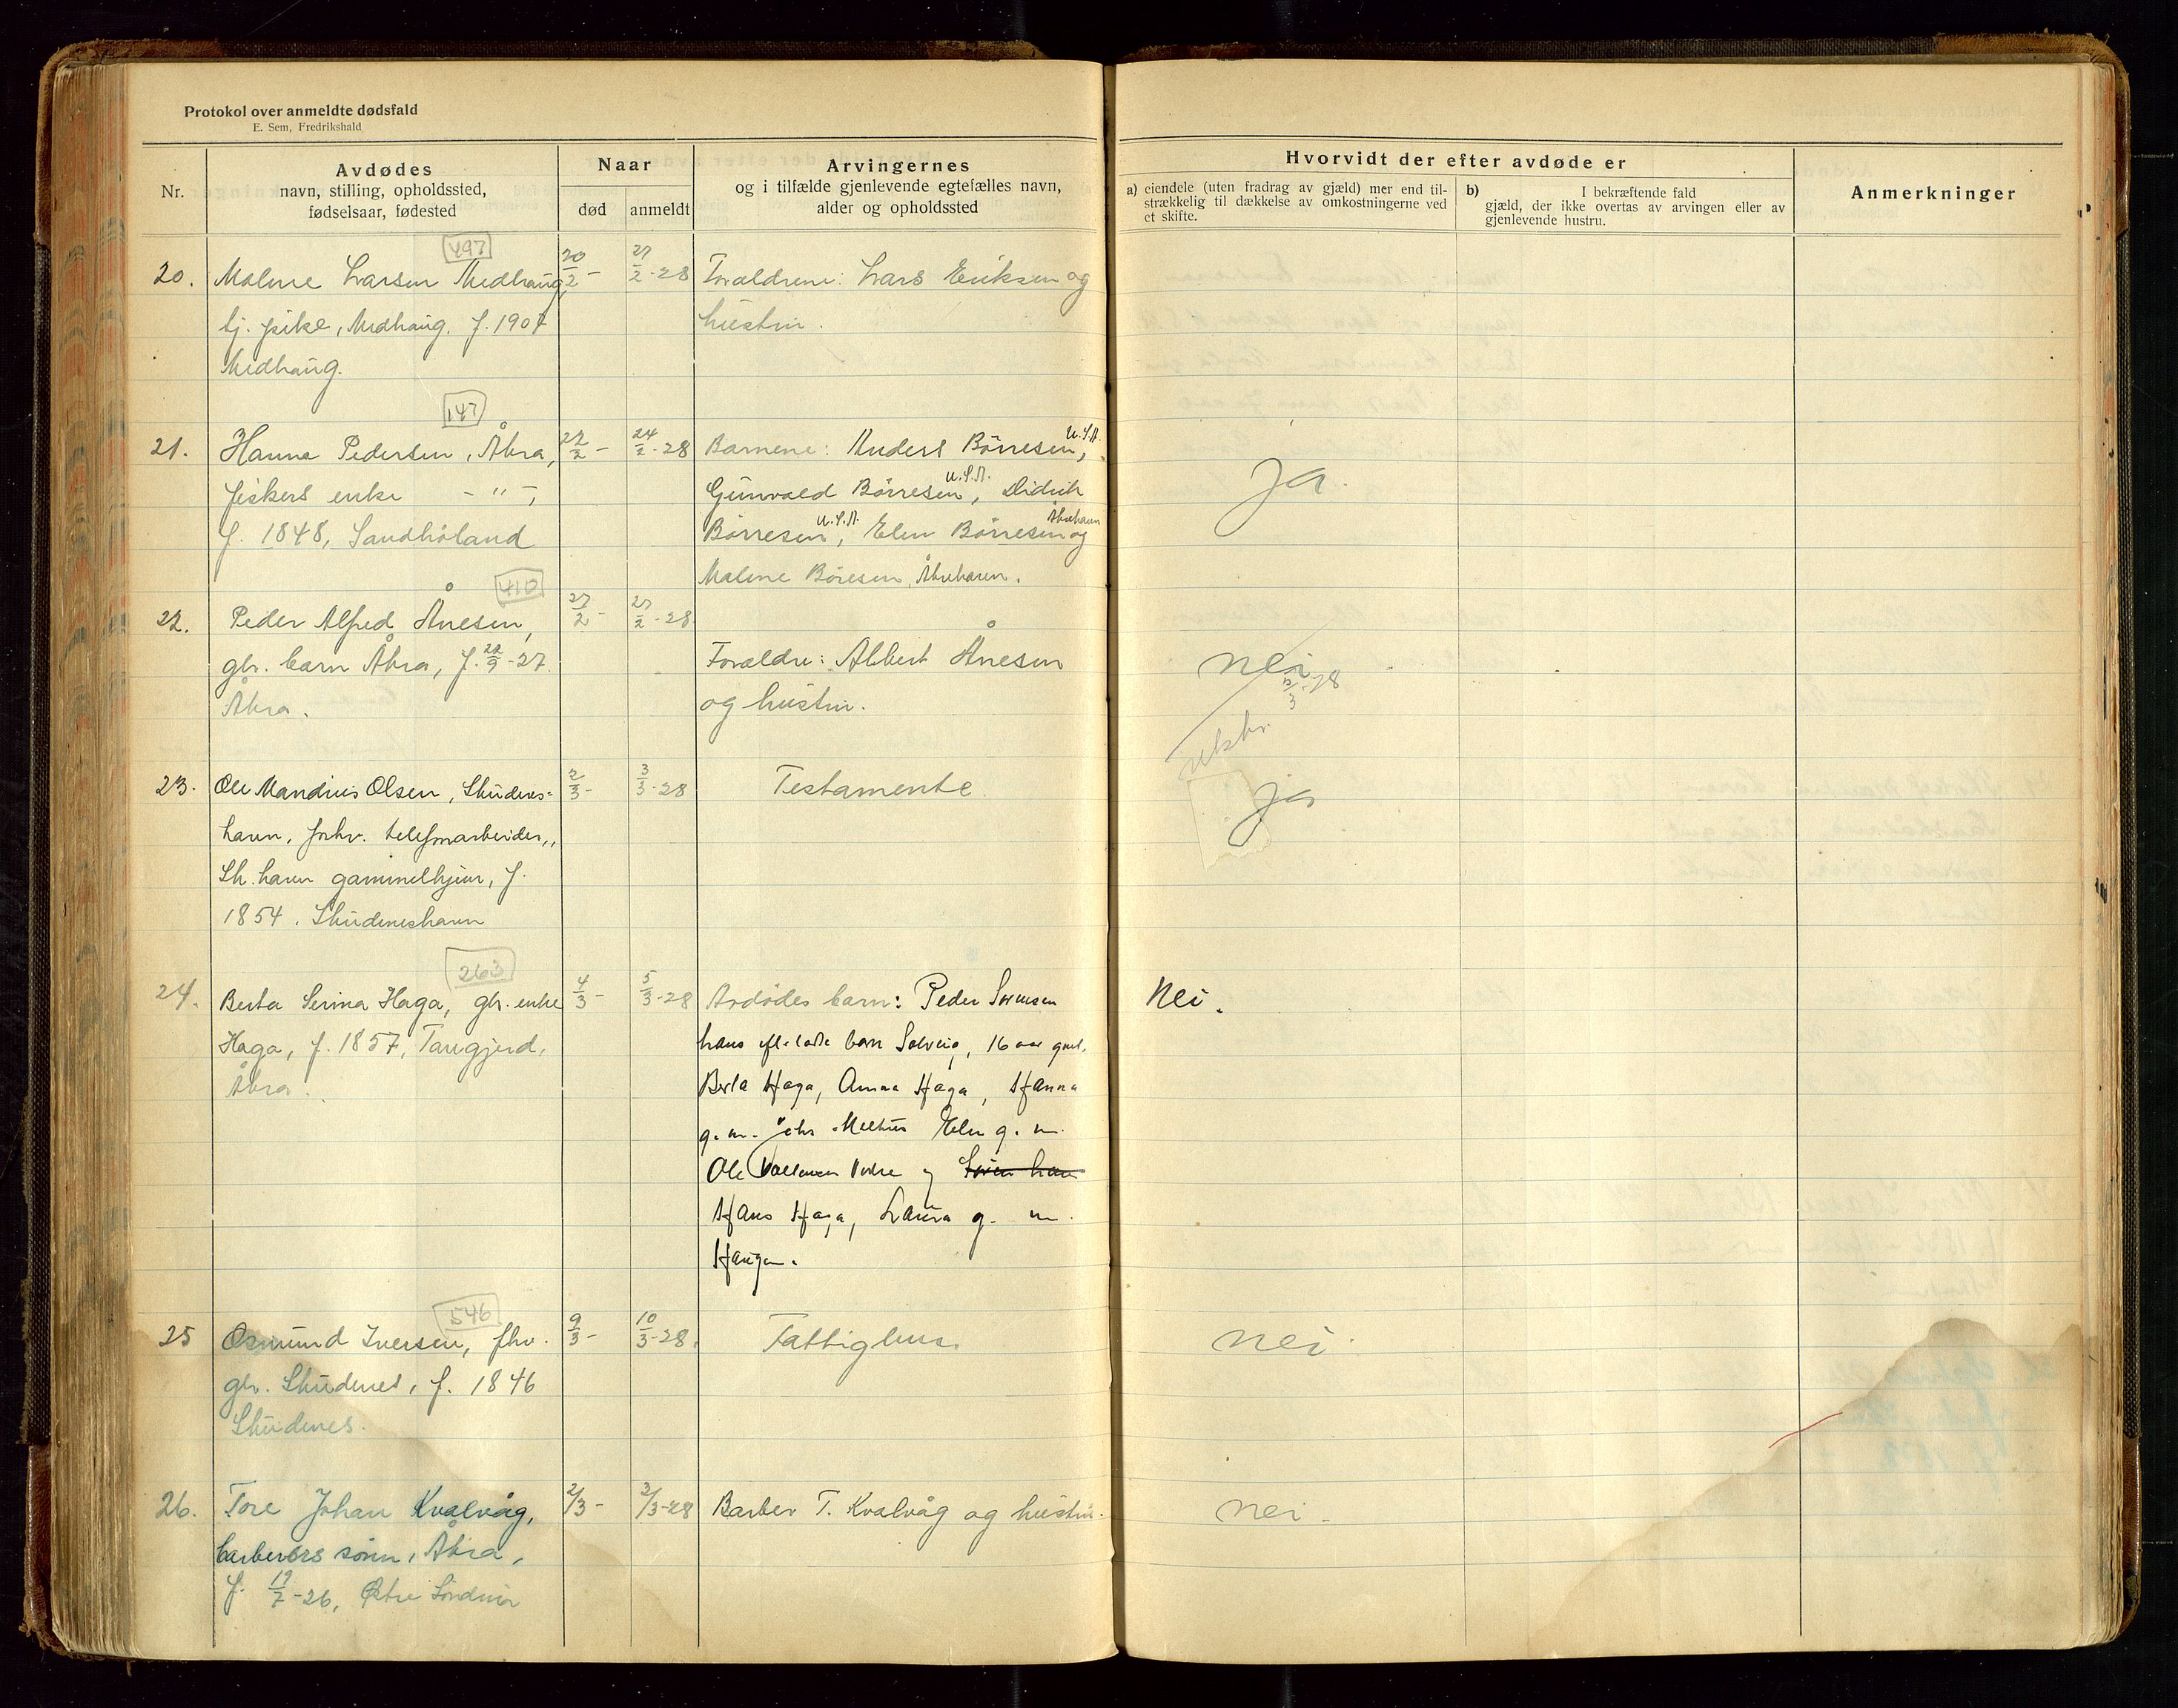 Protokol over anmeldte dødsfald
E. Sem, Fredrikshald
Nr.
Avdødes
navn, stilling, opholdssted,
fødselsaar, fødested
Naar
død
anmeldt
Arvingernes
og i tilfælde gjenlevende egtefælles navn,
alder og opholdssted
Hvorvidt der efter avdøde er
a) eiendele (uten fradrag av gjæld) mer end til-
strækkelig til dækkelse av omkostningerne ved
et skifte.
b) I bekræftende fald
gjæld, der ikke overtas av arvingen eller av
gjenlevende hustru.
Anmerkninger
497
20. Malene Larsen Medhaug, 20/2 - 27/2-28 Forældrene: Lars Eriksen og
tj. pike, Medhaug. f. 1907 hustru.
Medhaug.
147
21. Hanna Pedersen, Åkra, 22/2 - 24/2-28 Barnene: Anders Börresen, U.S.A. Ja.
fiskers enke - " - , Gunvald Börresen, U.S.A. Didrik
f. 1848, Sandhåland Börresen, U.S.A. Elen Börresen Åkrehavn og
Malene Böresen, Åkrehavn.
410
22. Peder Alfred Ånesen, 27/2 - 27/2-28
gbr. barn Åkra, f. 22/9-27. Forældre: Albert Ånesen nei
Åkra. og hustru.
/3-28
23. Ole Mandius Olsen, Skudenes= 2/3- 3/3-28 Testamente ja
havn, forhv. telefonarbeider,,
Sk.havn gammelhjem, f.
1854. Skudeneshavn
263
24. Berta Serina Haga, gbr. enke 4/3- 5/3-28 Avdødes barn: Peder Sörensen Nei.
Haga, f. 1857, Tangjerd, hans barn Solveig, 16 aar gml.
Åkra. Berta Haga, Anna Haga, Hanna
g. m. Elen g. m.
Ole og
Hans Haga, Laura g. m.
Haugen.
546
25 Osmund Iversen, fhv. 9/3- 10/3-28. Fattighus. nei.
gbr. Skudenes, f. 1846
Skudenes.
26. Tore Johan Kvalvåg, 2/3- 3/3-28 Barber T. Kvalvåg og hustru. nei.
barberers sönn, Åkra,
f. 19/7-26, Østre